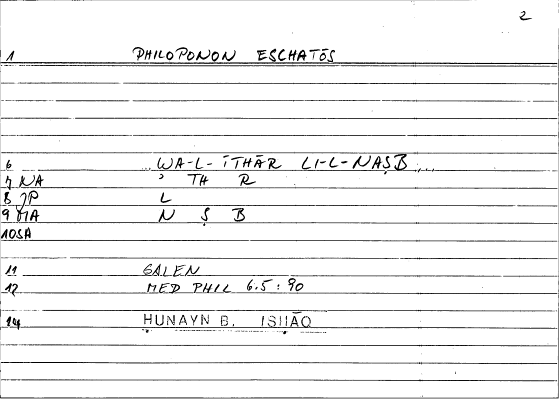 2
1 PHILOPONON ESCHATŌS
6 ... WA-L-ĪTHĀR LI-L-NAṢB ...
7 NA ʾ TH R
8 JP L
9 MA N Ṣ B
10SA
11 GALEN
12 MED PHIL 6.5:90
14 HUNAYN B. ISḤĀQ